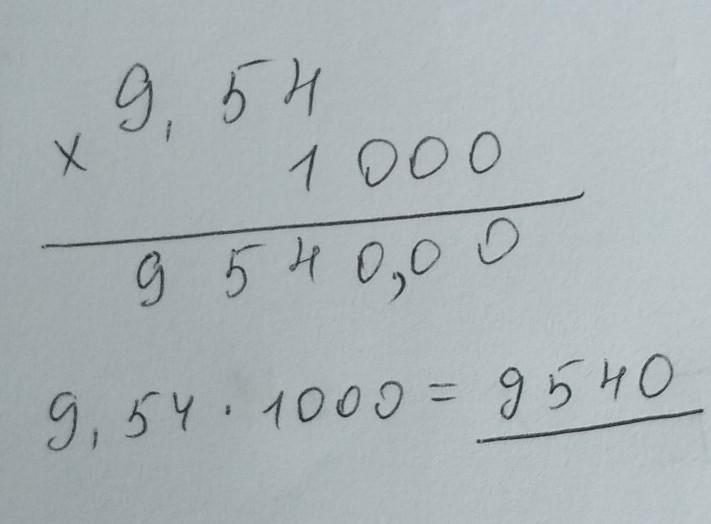 9,54
× 1000
9540,00
9,54 · 1000 = 9540